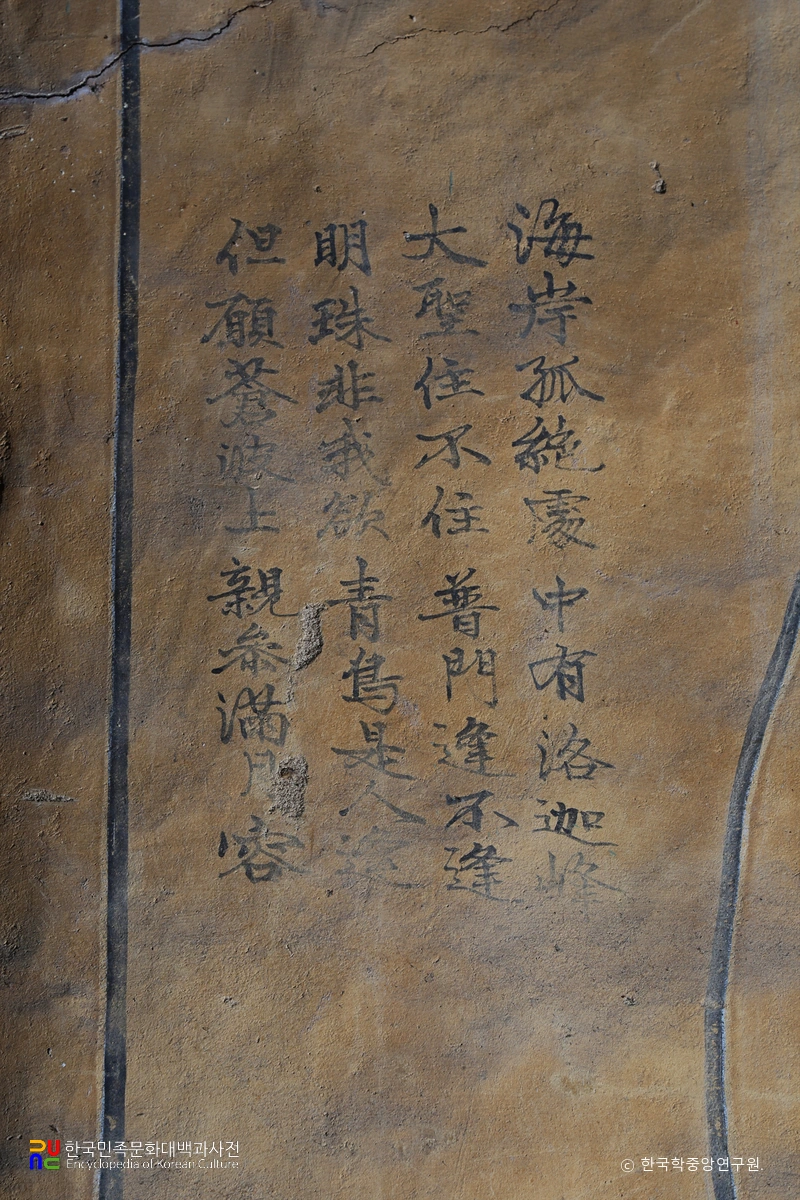 海岸孤絶處 中有洛迦峰
大聖住不住 普門逢不逢
明珠非我欲 青鳥是人
但願蒼波上 親叅滿月容
한국민족문화대백과사전
Encyclopedia of Korean Culture
© 한국학중앙연구원.